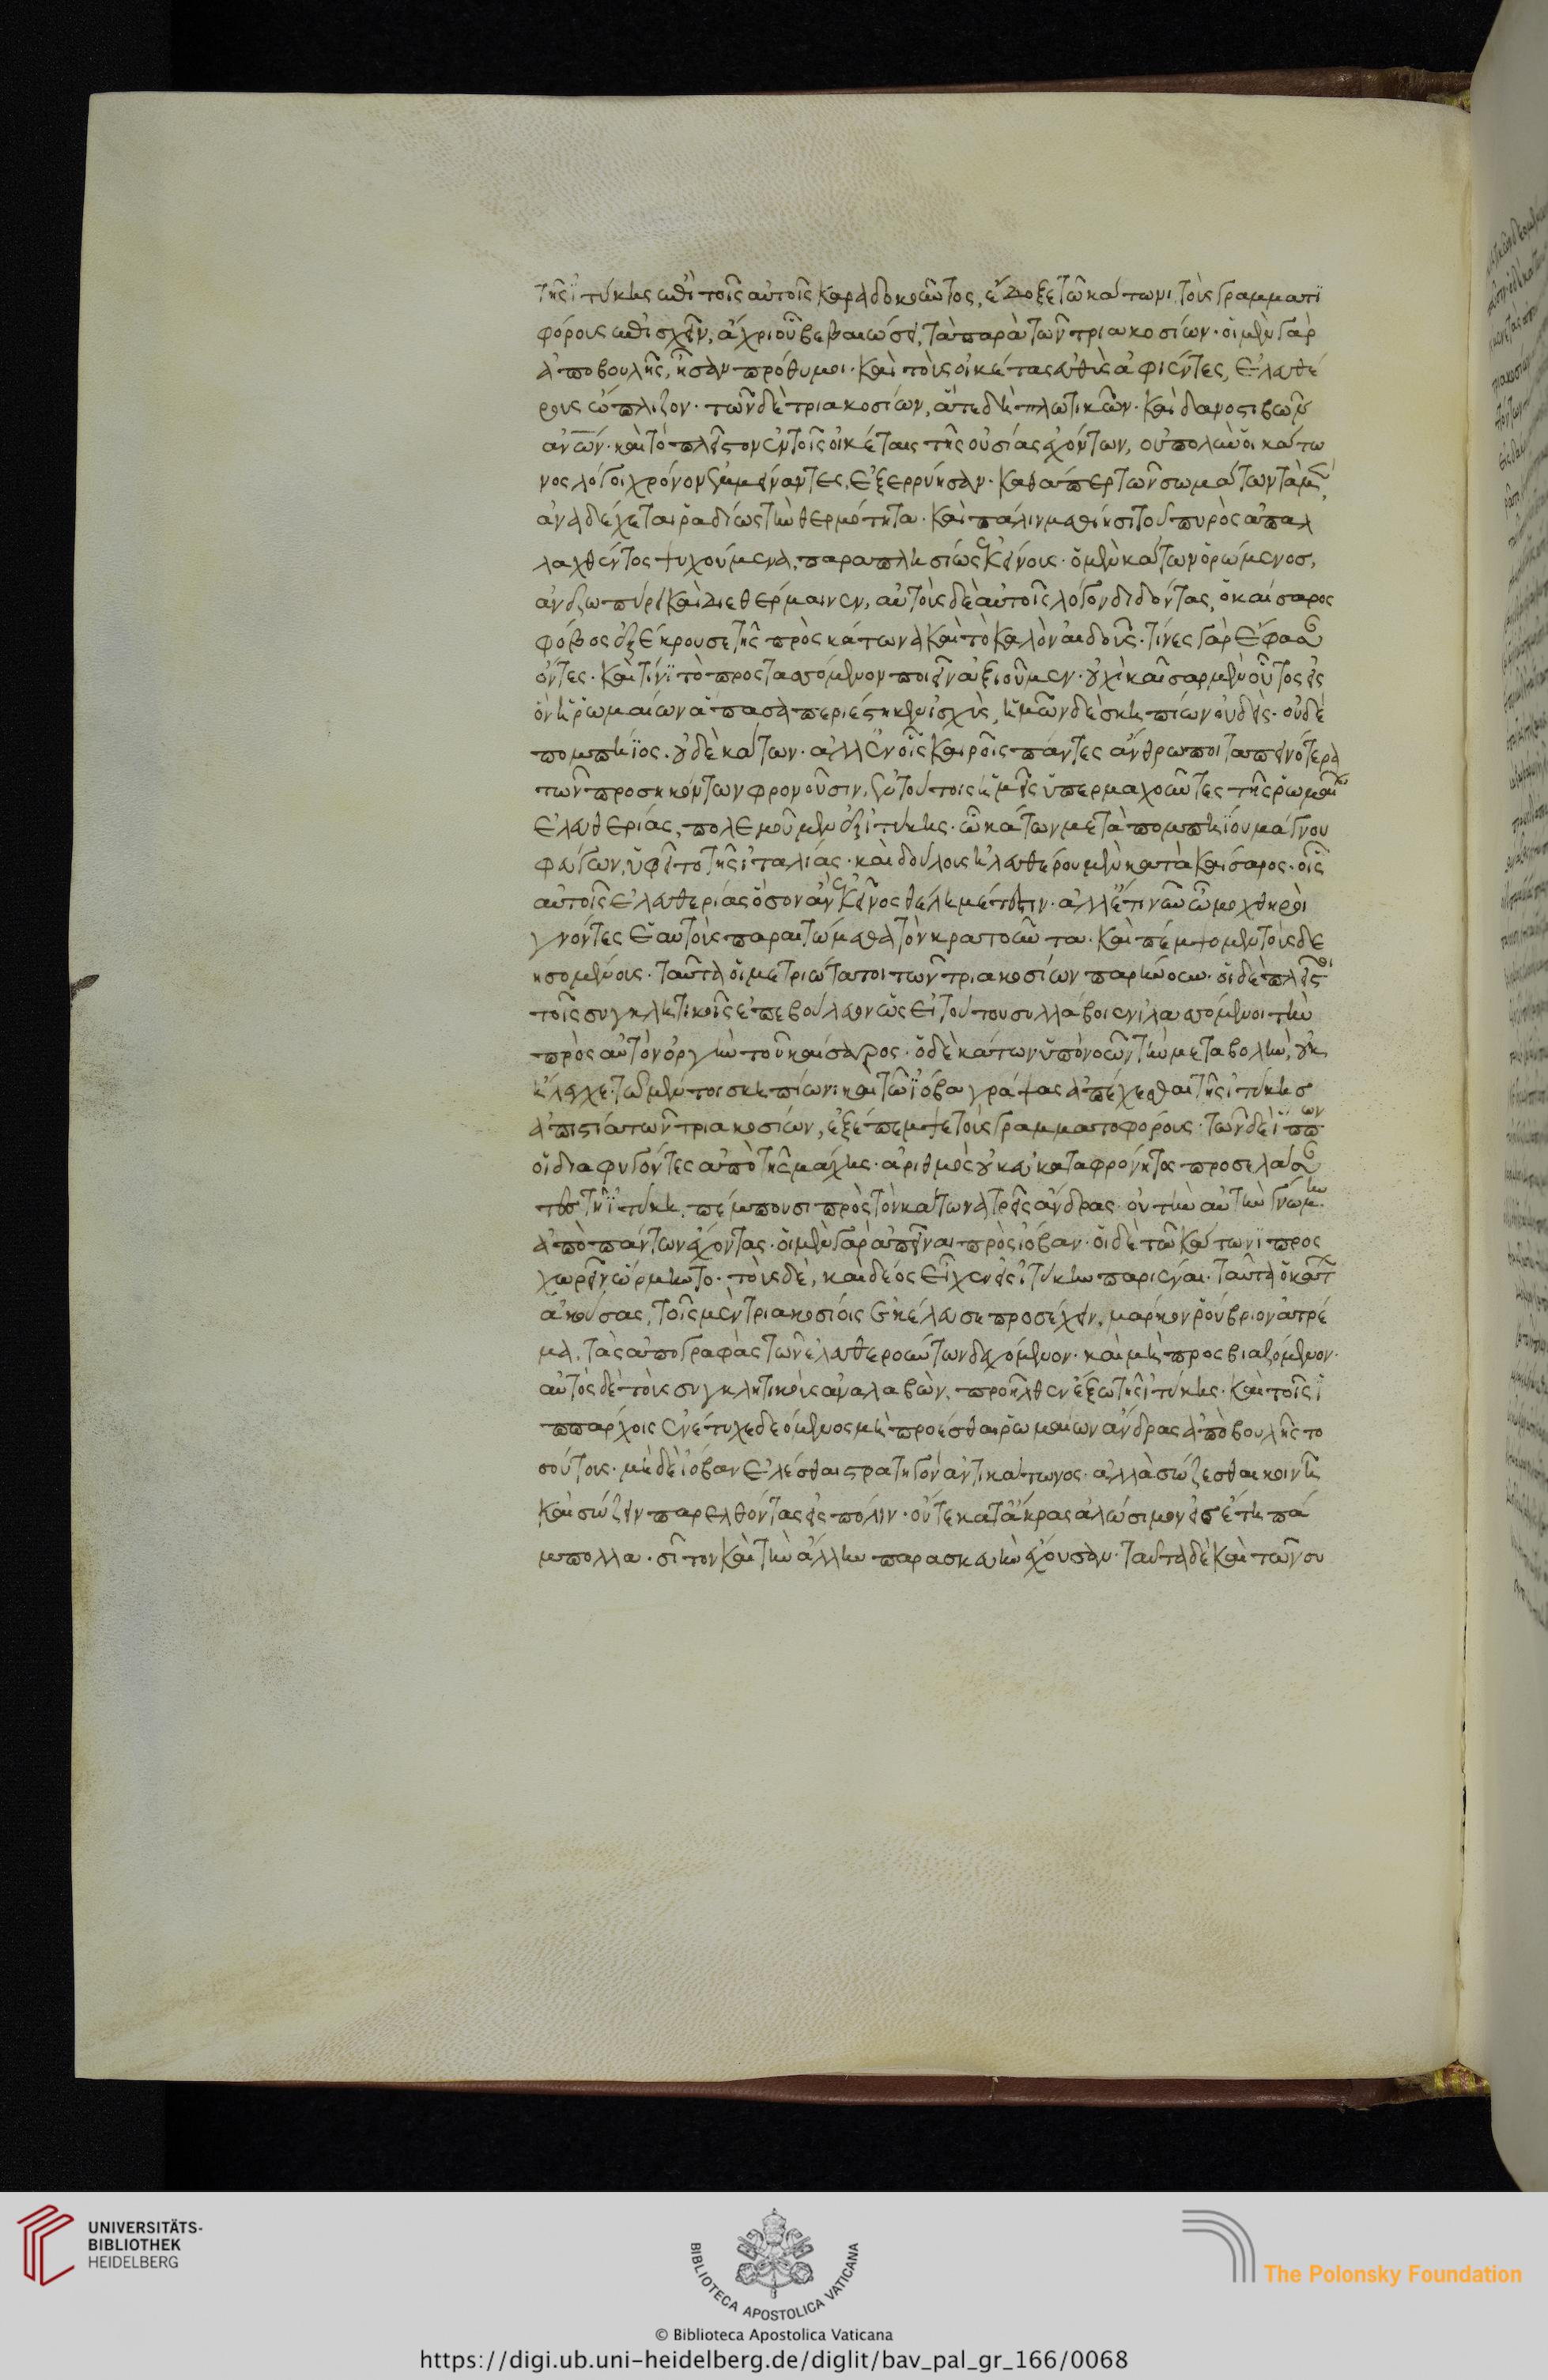 τῆς ἰτύκης ἐπὶ τοῖς αὐτοῖς καραδοκοῦντος, ἔδοξε τῶ κάτωνι τοὺς γραμματι
φόρους ἐπισχεῖν, ἄχρι οὗ βεβαιώσει τὰ παρὰ τῶν τριακοσίων· οἱ μὲν γὰρ
ἀπο βουλῆς, ἦσαν πρόθυμοι· καὶ τοὺς οἰκέτας εὐθὺς ἀφιέντες, ἐλευθέ
ρους ὥπλιζον· τῶν δὲ τριακοσίων, ἅτε δὴ πλωτικῶν· καὶ δανειστικῶν
ἀνῶν· καὶ τὸ πλεῖστον ἐν τοῖς οἰκέταις τῆς οὐσίας ἐχόντων, οὐ πολὺν οἱ κάτω
νος λόγοι χρόνον ἐμμείναντες, ἐξερρύησαν· καθάπερ τῶν σωμάτων τὰ μὲν
ἀναδέχεται ῥαδίως τὴν θερμότητα· καὶ πάλιν μεθίησι τοῦ πυρὸς ἀπαλ
λαχθέντος ψυχούμενα, παραπλησίως ἐκείνους· ὁ μὲν κάτων ὁρώμενος,
ἀνεζωπύρει καὶ διεθέρμαινεν, αὐτοὺς δὲ αὐτοῖς λόγον διδόντας, ὁ καίσαρος
φόβος ἐξέκρουσε τῆς πρὸς κάτωνα καὶ τὸ καλὸν αἰδοῦς· τίνες γὰρ ἔφασαν
ὄντες· καὶ τίνι τὸ προστασσόμενον ποιεῖν ἀξιοῦμεν· οὐχὶ καῖσαρ μὲν οὗτος εἰς
ὃν ἡ ῥωμαίων ἅπασα περιέστηκεν ἰσχὺς, ἡμῶν δὲ σκηπίων οὐδεὶς· οὐδὲ
πομπήϊος· οὐδὲ κάτων· ἀλλ' ἐν οἷς καιροῖς πάντες ἄνθρωποι ταπεινότερα
τῶν προσηκόντων φρονοῦσιν, ἐν τούτοις ἡμεῖς ὑπερμαχοῦντες τῆς ῥωμαίων
ἐλευθερίας, πολεμοῦμεν ἐξ ἰτύκης· ὧ κάτων μετὰ πομπηΐου μάγνου
φεύγων, ὑφεῖτο τῆς ἰταλίας· καὶ δούλους ἠλευθέρου μὲν κατὰ καίσαρος· οἷς
αὐτοῖς ἐλευθερίας ὅσον ἂν ἐκεῖνος θέλη μέτεστιν· ἀλλ' ἔτι νῦν ὧ μοχθηροὶ
γνόντες ἑαυτοὺς παραιτώμεθα τὸν κρατοῦντα· καὶ πέμψομεν τοὺς δε
ησομένους· ταῦτα οἱ μετριώτατοι τῶν τριακοσίων παρήνουν· οἱ δὲ πλεῖστοι
τοῖς συγκλητικοῖς ἐπεβούλευον ὡς εἰ τούτου συλλάβοιεν ἱλασσόμενοι τὴν
πρὸς αὐτὸν ὀργὴν τοῦ καίσαρος· ὁ δὲ κάτων ὑπονοῶν τὴν μεταβολὴν, οὐκ
ἤλεγχε· τῶ μέν τοι σκηπίωνι καὶ τῶ ϊόβα γράψας ἀπέχεσθαι τῆς ἰτύκης
ἀπιστία τῶν τριακοσίων, ἐξέπεμψε τοὺς γραμματοφόρους· τῶν δὲ ἱππέων
οἱ διαφυγόντες ἀπὸ τῆς μάχης· ἀριθμὸς οὐκ εὐκαταφρόνητος προσελάσαν
τες τῆ ϊτύκη, πέμπουσι πρὸς τὸν κάτωνα τρεῖς ἄνδρας· οὐ τὴν αὐτὴν γνώμην
ἀπὸ πάντων ἔχοντας· οἱ μὲν γὰρ ἀπεῖναι πρὸς ἰόβαν· οἱ δὲ τῶ κάτωνϊ προς
χωρεῖν ὥρμηντο· τοὺς δὲ, καὶ δέος εἶχεν εἰς ἰτύκην παριέναι· ταῦτα ὁ κάτων
ἀκούσας, τοῖς μὲν τριακοσίοις ἐκέλευσε προσέχειν, μάρκον ῥούβριον ἀτρέ
μα, τὰς ἀπογραφὰς τῶν ἐλευθερούντων δεχόμενον· καὶ μὴ προσβιαζόμενον·
αὐτὸς δὲ τοὺς συγκλητικοὺς ἀναλαβὼν, προῆλθεν ἔξω τῆς ἰτύκης· καὶ τοῖς ϊ
ππάρχοις ἐνέτυχε δεόμενος μὴ προέσθαι ῥωμαίων ἄνδρας ἀπὸ βουλῆς το
σούτους· μὴδὲ ἰόβαν ἑλέσθαι στρατηγὸν ἀντὶ κάτωνος· ἀλλὰ σώζεσθαι κοινῆ
καὶ σώζειν παρελθόντας εἰς πόλιν· οὔτε κατάκρας ἁλώσιμον εἰς ἔτη πά
μπολλα· σῖτον καὶ τὴν ἄλλην παρασκευὴν ἔχουσαν· ταῦτα δὲ καὶ τῶν συ
UNIVERSITÄTS-
BIBLIOTHEK
HEIDELBERG
BIBLIOTECA APOSTOLICA VATICANA
The Polonsky Foundation
© Biblioteca Apostolica Vaticana
https://digi.ub.uni-heidelberg.de/diglit/bav_pal_gr_166/0068